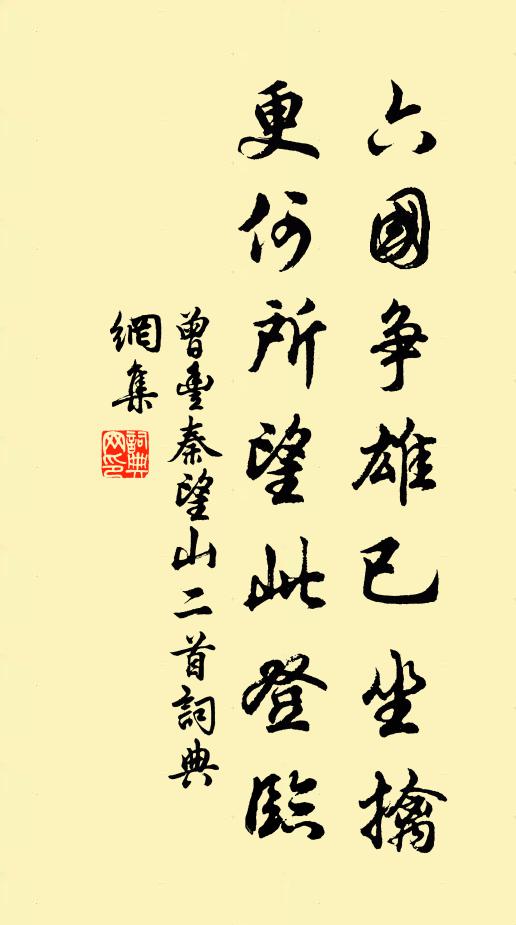 六國争雄已坐擒
更何所望此登臨
曾豊秦望山二首詞典
網集
詞典
网印